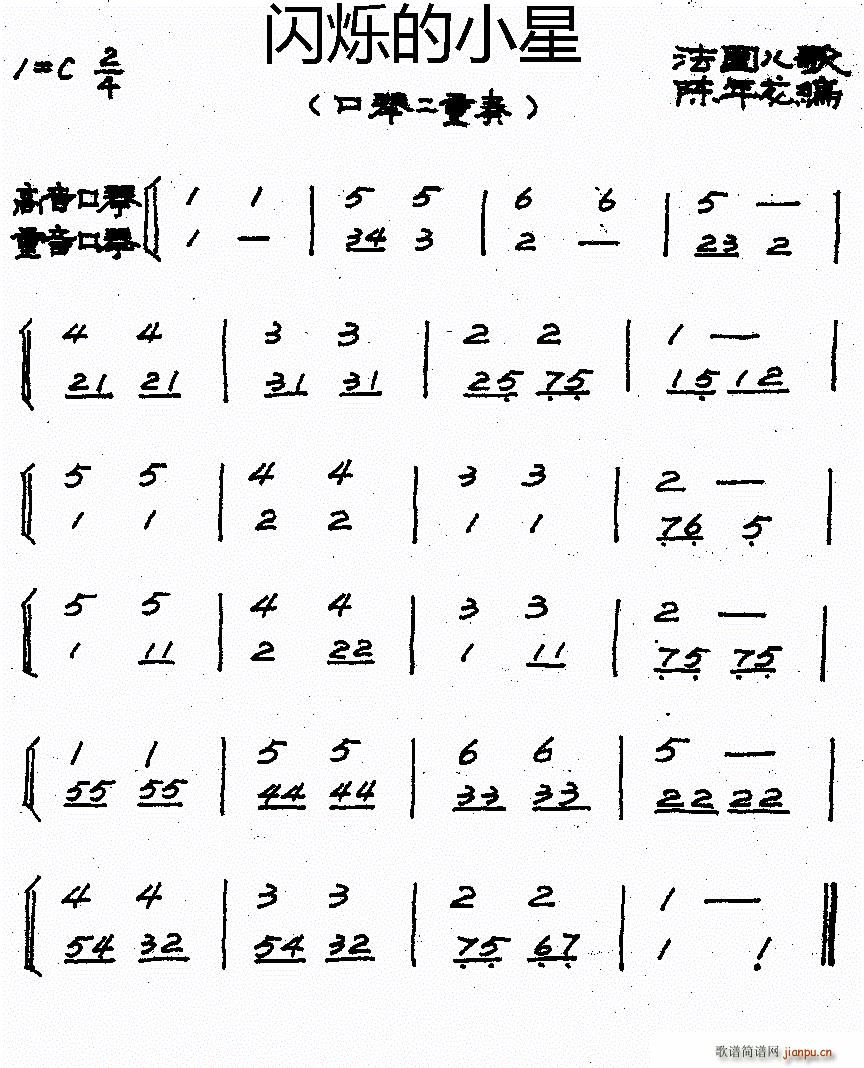 闪烁的小星
1=C 2/4
(口琴二重奏)
法国儿歌
陈年芳编
高音口琴 1 1 | 5 5 | 6 6 | 5 — |
重音口琴 1 — | 34 3 | 2 — | 23 2 |
4 4 | 3 3 | 2 2 | 1 — |
21 21 | 31 31 | 25̣ 7̣5̣ | 15̣ 12 |
5 5 | 4 4 | 3 3 | 2 — |
1 1 | 2 2 | 1 1 | 7̣6̣ 5̣ |
5 5 | 4 4 | 3 3 | 2 — |
1 11 | 2 22 | 1 11 | 7̣5̣ 7̣5̣ |
1 1 | 5 5 | 6 6 | 5 — |
55 55 | 44 44 | 33 33 | 22 22 |
4 4 | 3 3 | 2 2 | 1 — ‖
54 32 | 54 32 | 7̣5̣ 6̣7̣ | 1 1̣ ‖
歌谱简谱网 jianpu.cn